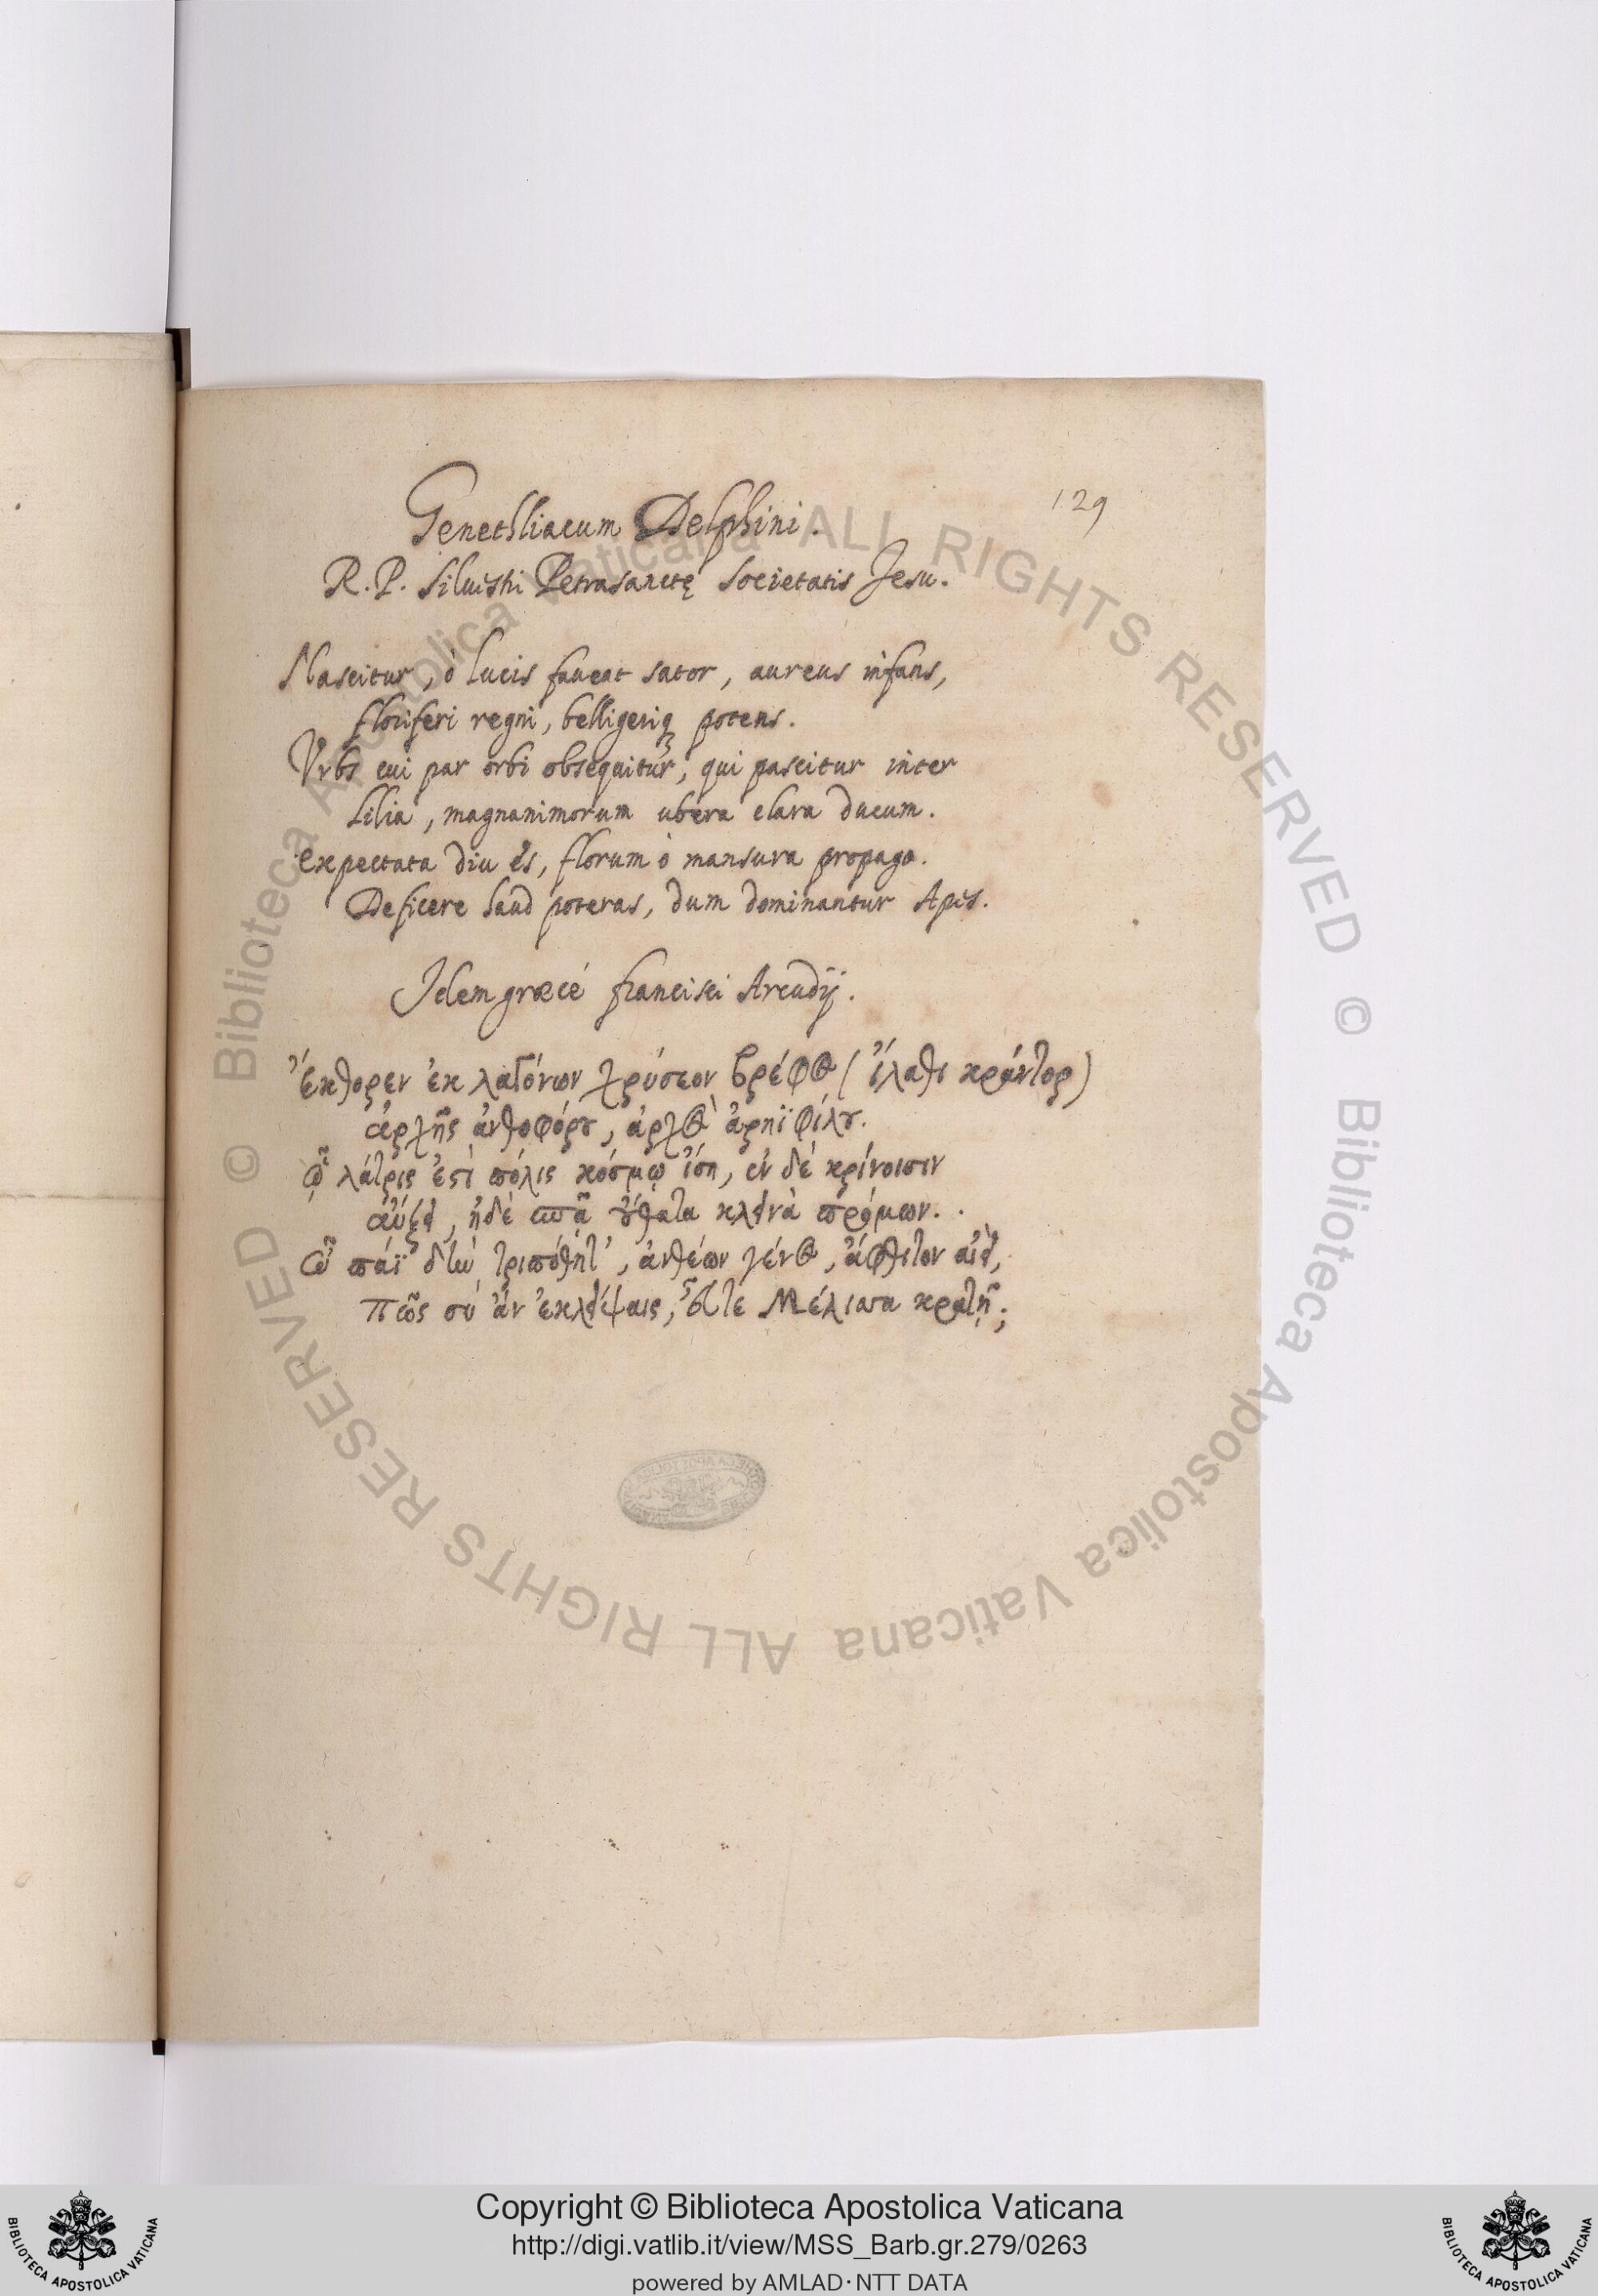 129
Genethliacum Delphini.
R.P. Siluistri Petrasanctę Societatis Jesu.
Nascitur, ò lucis faueat sator, aureus infans,
floriferi regni, belligeriq; potens.
Vrbs cui par orbi obsequitur, qui pascitur inter
Lilia, magnanimorum ubera clara ducum.
Expectata diu es, florum ò mansura propago.
Deficere haud poteras, dum dominantur Apes.
Idem græcè francisci Arcudij.
Ἔκθορεν ἐκ λαγόνων χρύσεον βρέφος (ἵλαθι κράντορ)
ἀρχῆς ἀνθοφόρου, ἀρχὸς ἀρηϊφίλου.
ᾧ λάτρις ἐστὶ πόλις κόσμῳ ἴση, ἐν δὲ κρίνοισιν
αὔξει, ἠδὲ σπᾷ οὔθατα κλεινὰ πρόμων.
Ὦ πάϊ δὴν τριπόθητ', ἀνθέων γένος, ἄφθιτον αἰεὶ,
πῶς σύ ἂν ἐκλείψαις, εὖτε Μέλισσα κρατῇ;
© Biblioteca Apostolica Vaticana ALL RIGHTS RESERVED
© Biblioteca Apostolica Vaticana ALL RIGHTS RESERVED
Copyright © Biblioteca Apostolica Vaticana
http://digi.vatlib.it/view/MSS_Barb.gr.279/0263
powered by AMLAD·NTT DATA
BIBLIOTECA APOSTOLICA VATICANA
BIBLIOTECA APOSTOLICA VATICANA